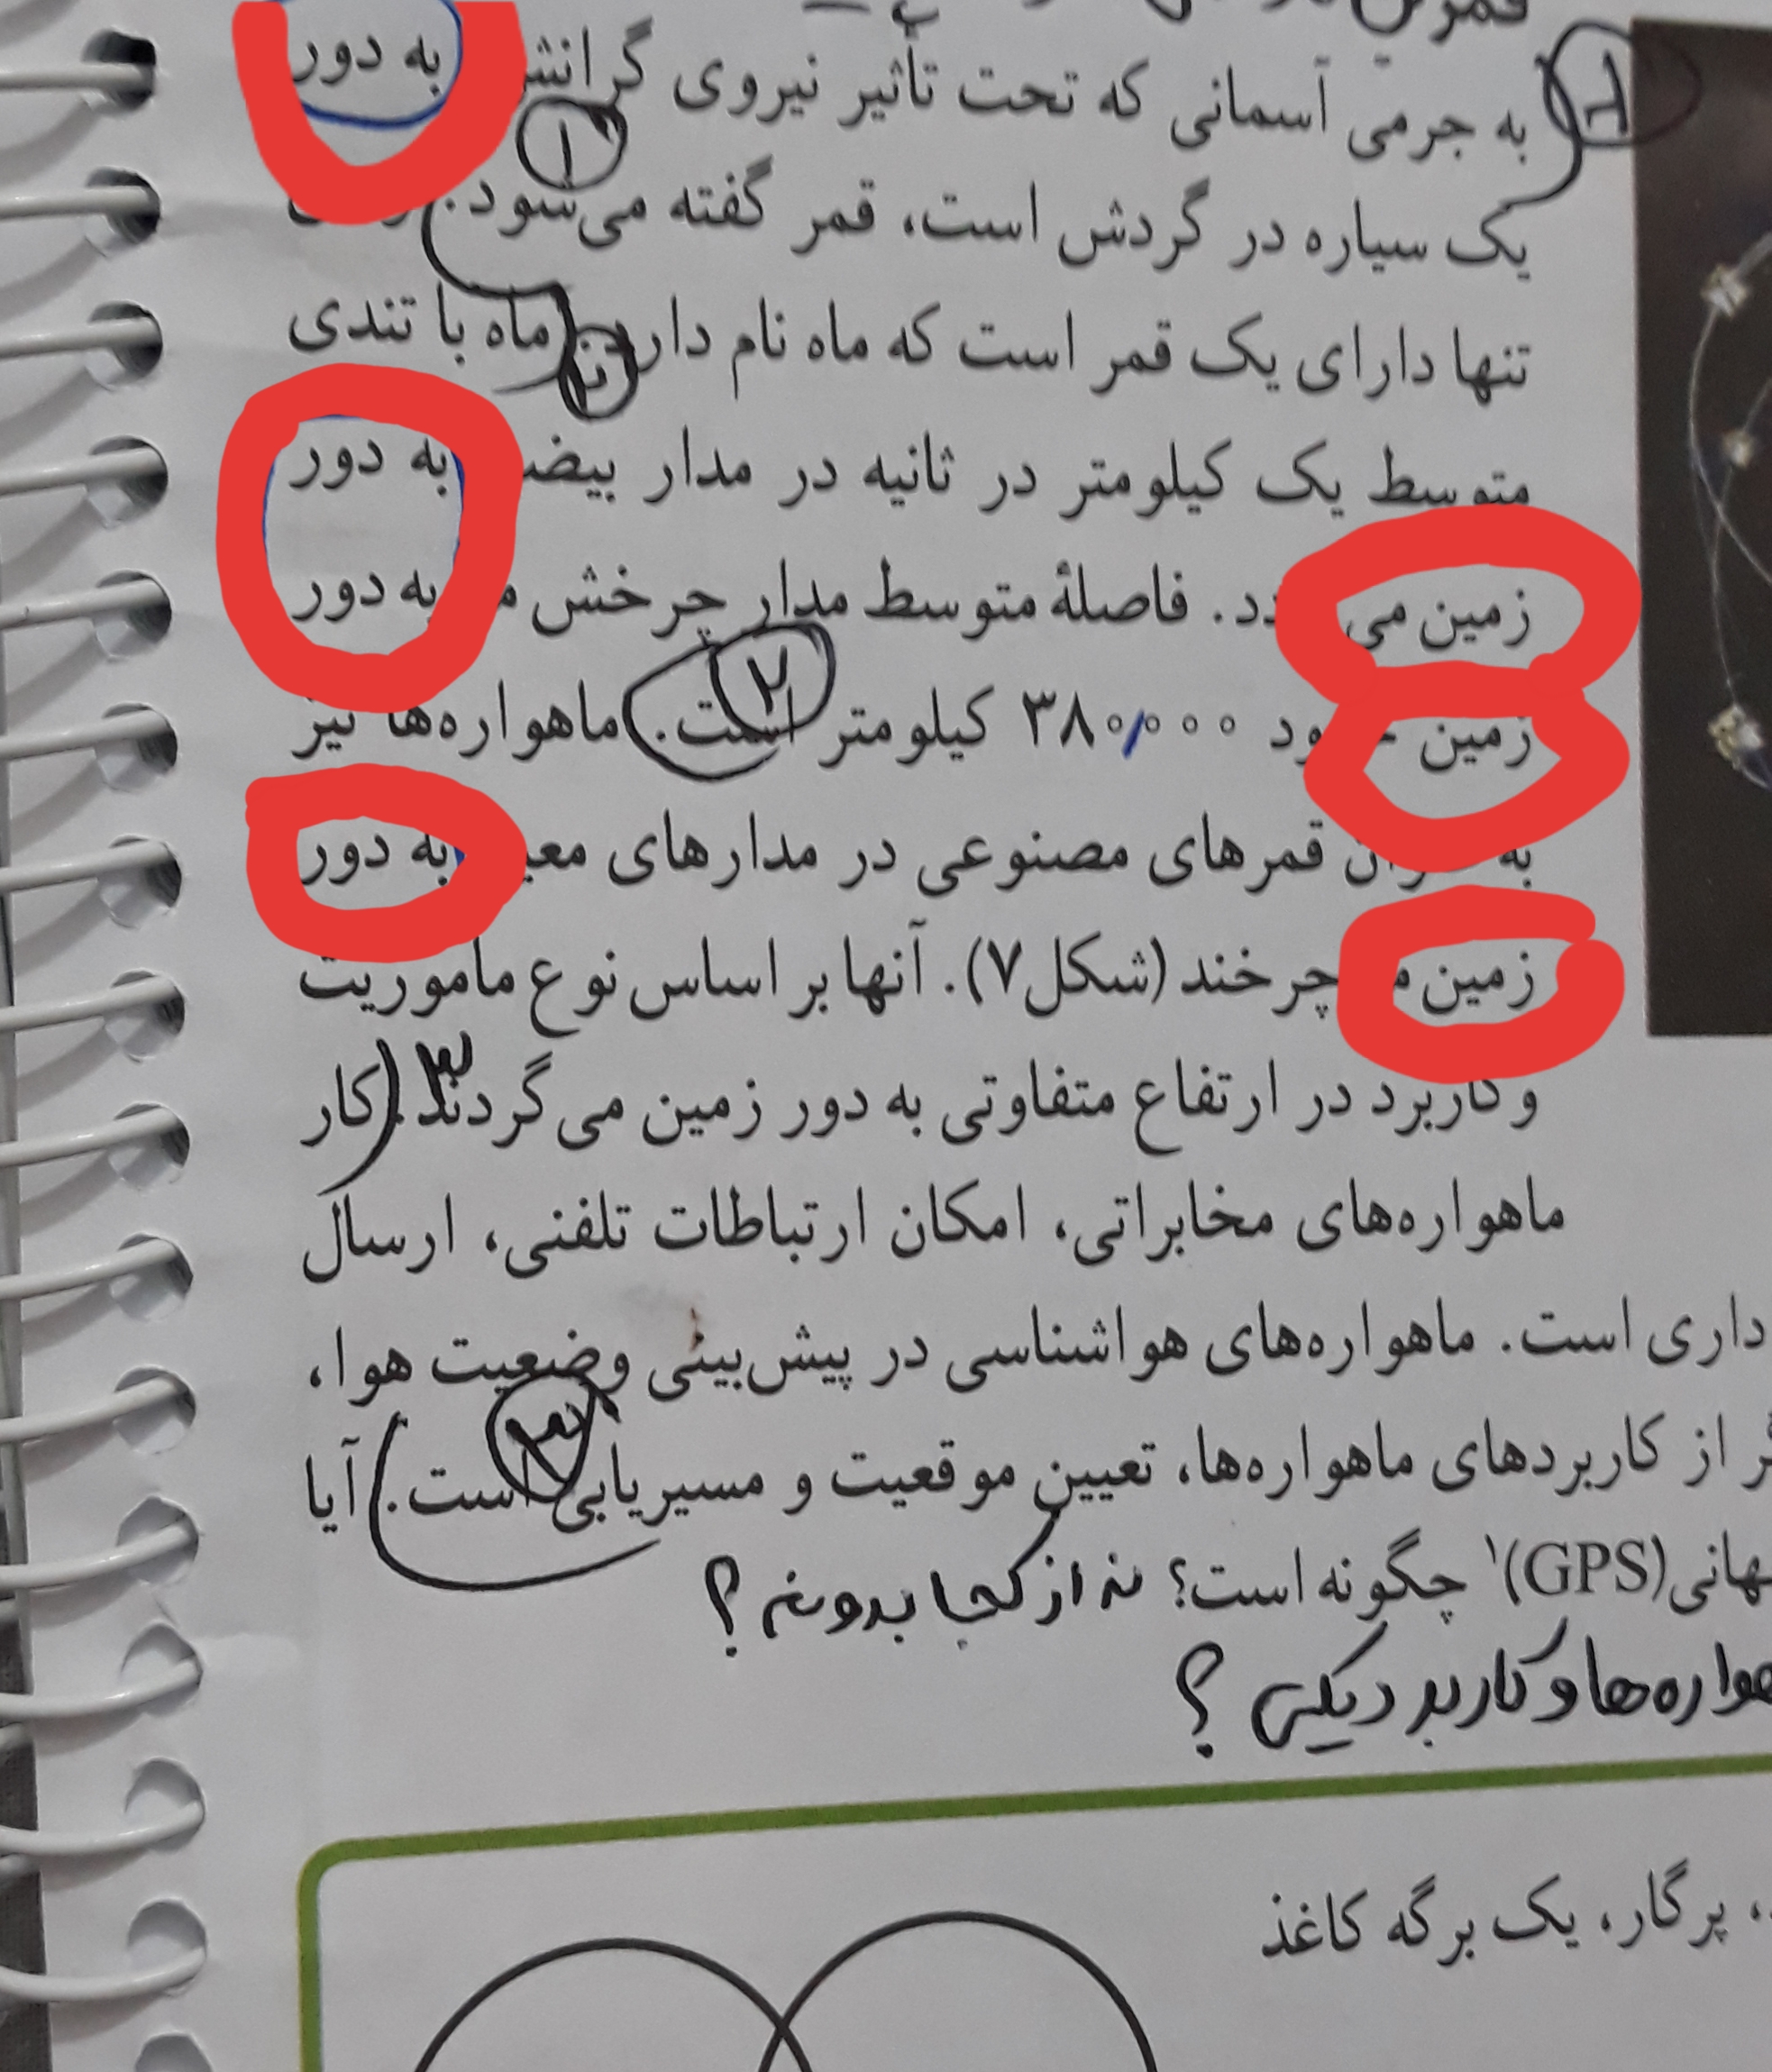 به جرمی آسمانی که تحت تأثیر نیروی گرانش به دور
۱
یک سیاره در گردش است، قمر گفته می‌شود.
تنها دارای یک قمر است که ماه نام دارد. ماه با تندی
متوسط یک کیلومتر در ثانیه در مدار به دور
زمین می فاصلهٔ متوسط مدار چرخش به دور
۲
زمین ۳۸۰,۰۰۰ کیلومتر است. ماهواره‌ها نیز
به قمرهای مصنوعی در مدارهای به دور
زمین چرخند (شکل۷). آنها بر اساس نوع مأموریت
۳
و کاربرد در ارتفاع متفاوتی به دور زمین می‌گردند. کار
ماهواره‌های مخابراتی، امکان ارتباطات تلفنی، ارسال
داری است. ماهواره‌های هواشناسی در پیش‌بینی وضعیت هوا،
۳
از کاربردهای ماهواره‌ها، تعیین موقعیت و مسیریابی است. آیا
هانی(GPS)۱ چگونه است؟ نه از کجا بدونم؟
واره‌ها و کاربرد دیگر ؟
، پرگار، یک برگه کاغذ